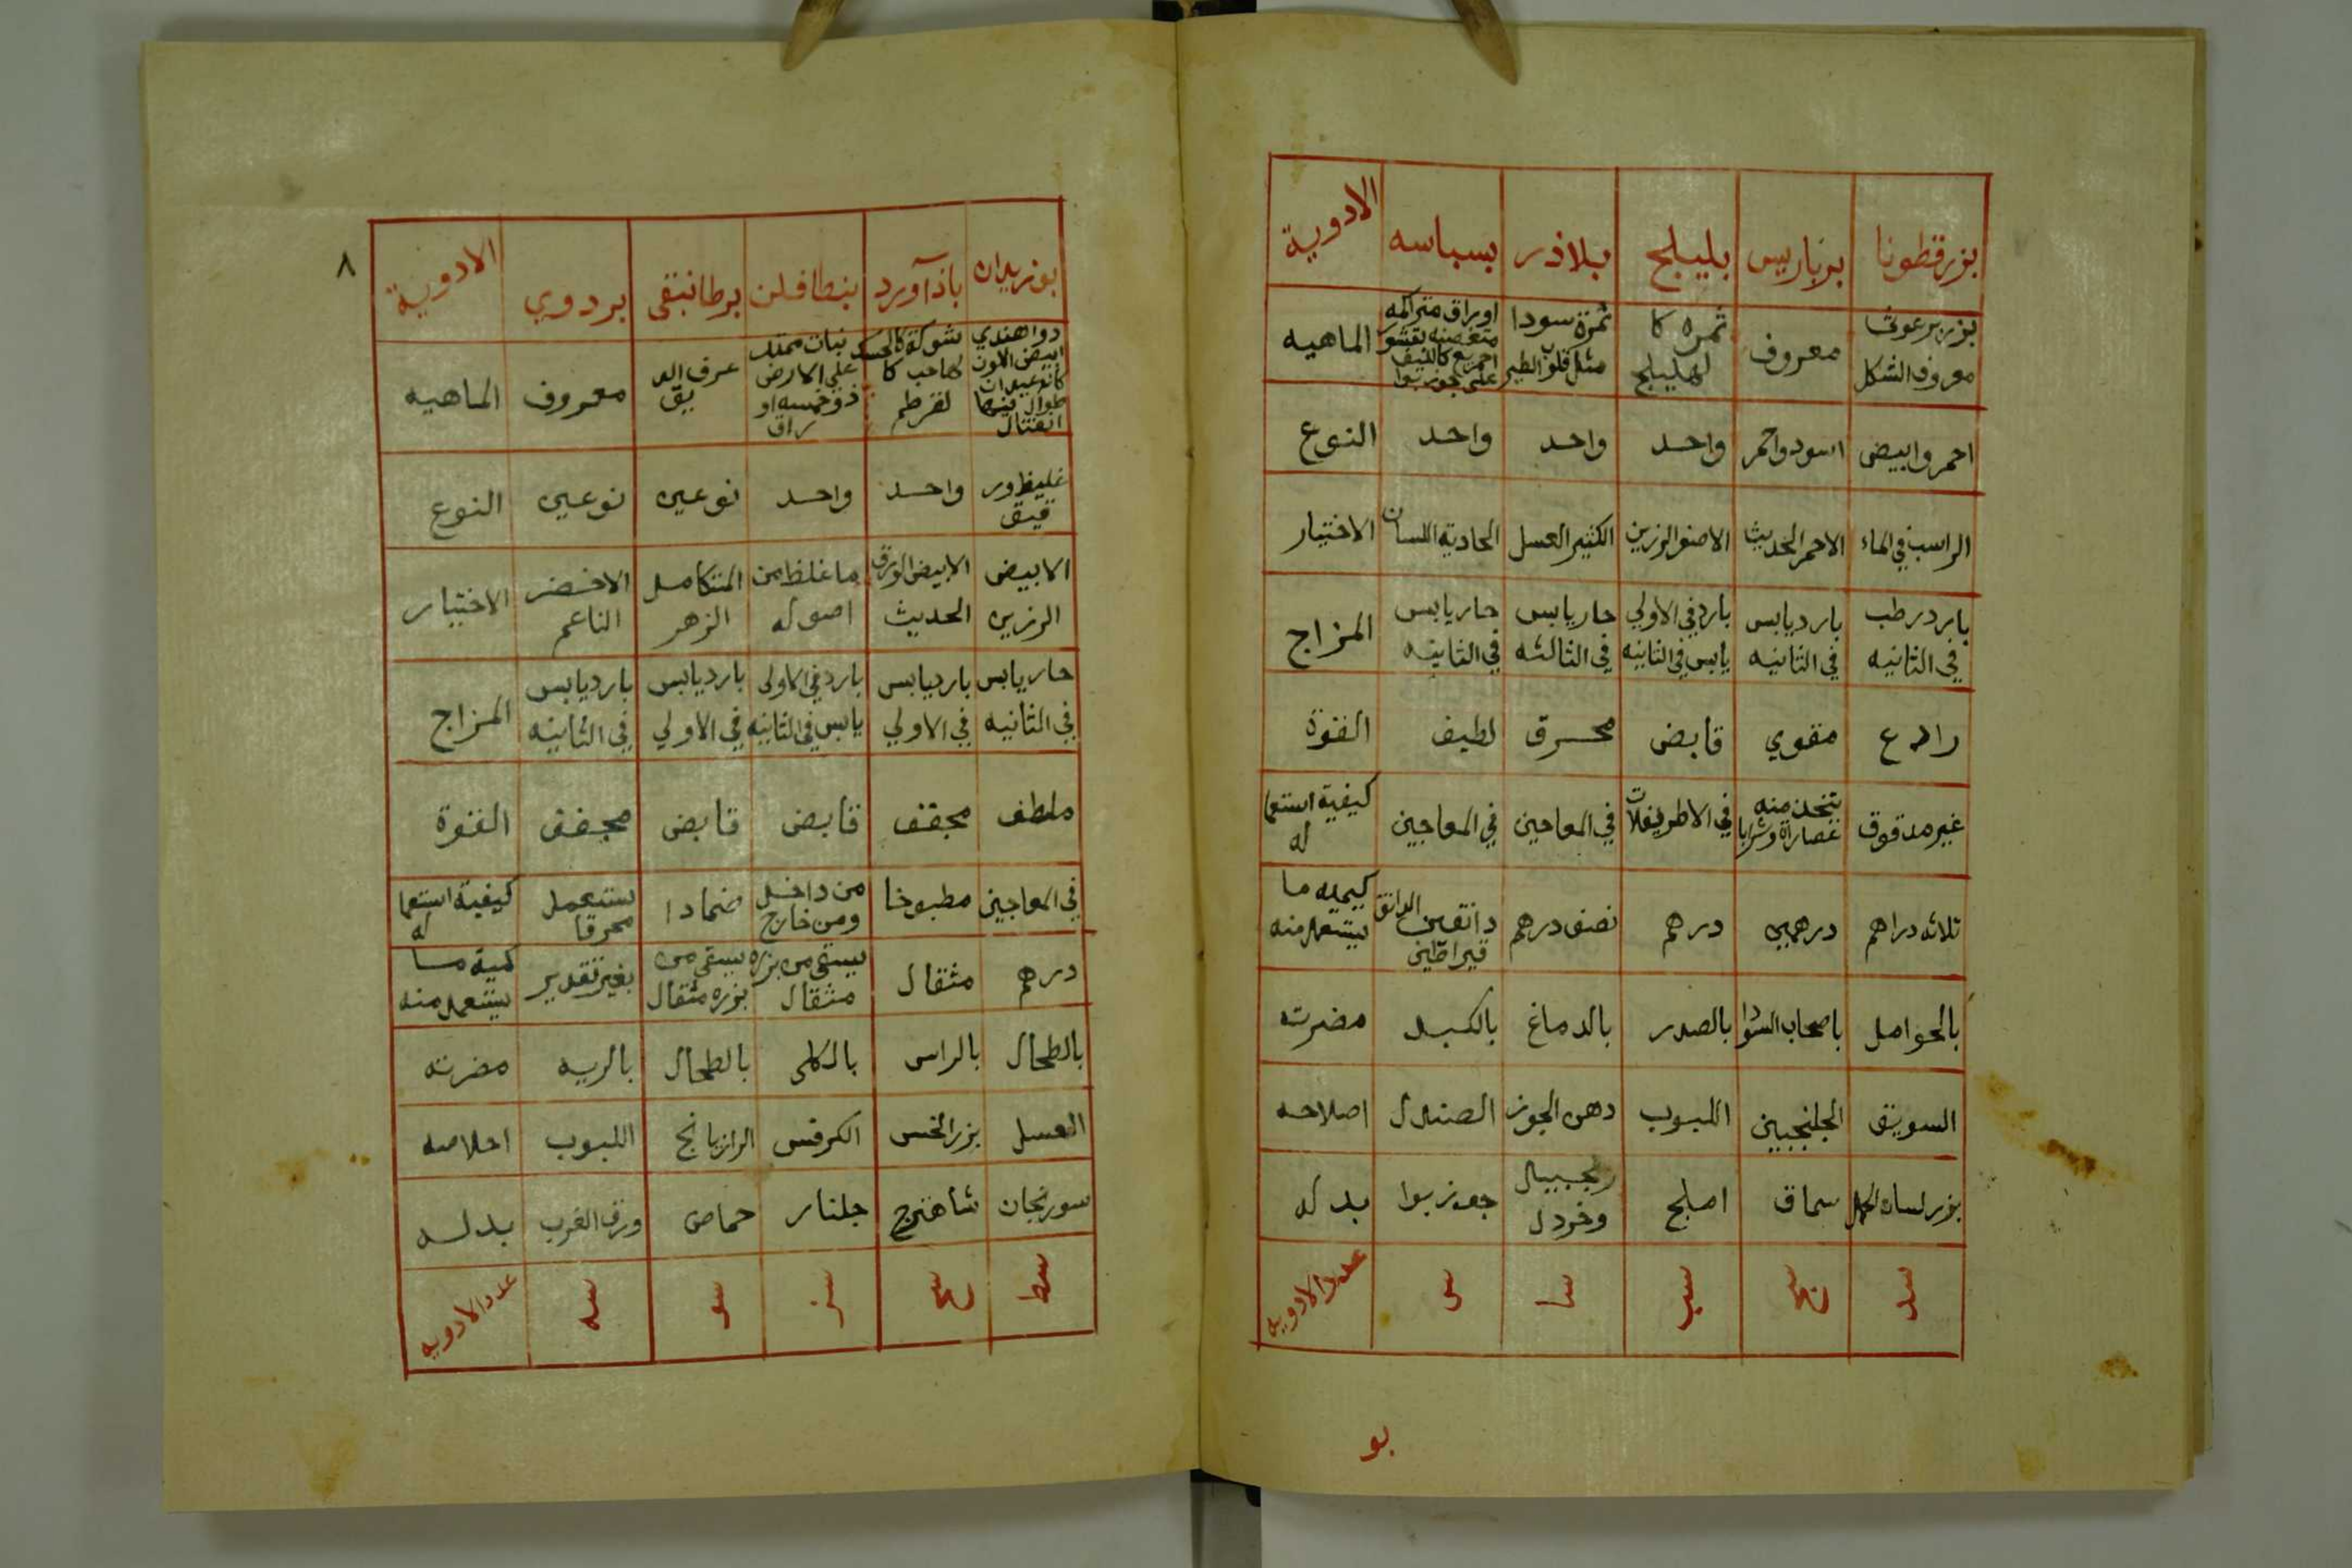 بزرقطونا برباريس بليلج بلاذر بسباسه الادوية
بزر برغوث معروف الشكل معروف ثمره كا لهليلج ثمرة سودا مثل قلوب الطير اوراق متراكمه على جوز بوا الماهيه
احمر وابيض اسود واحمر واحد واحد واحد النوع
الراسب في الماء الاحمر الحديث الاصفر الرزين الكثير العسل الحادية اللسان الاختيار
بارد رطب في الثانيه بارد يابس في الثانيه بارد في الاولي يابس في الثانيه حار يابس في الثالثه حار يابس في الثانيه المزاج
رادع مقوي قابض محرق لطيف القوة
غير مدقوق يتخذ منه عصارة وشرابا في الاطريفلات في المعاجين في المعاجين كيفية استعما له
ثلاثه دراهم درهمين درهم نصف درهم دانقين الدانق قيراطين كيميه ما يستعمل منه
بالحوامل باصحاب السودا بالصدر بالدماغ بالكبد مضرته
السويق الجلنجبين اللبوب دهن الجوز الصندل اصلاحه
بزر لسان الحمل سماق املج زنجبيل وخردل جوز بوا بدله
سد سج سب سا س عدد الادويه
بو
٨
بوزيدان باذآورد بنطافلن برطانيقى بردوي الادوية
دوا هندي ابيض اللون كانه عيدان طوال فيها انفتال شوكة كالحسك لها حب كا لقرطم نبات ممتد علي الارض ذو خمسه او راق معروف الماهيه
غليظ ور قيق واحد واحد نوعين نوعين النوع
الابيض الرزين الابيض الورق الحديث ما غلظ من اصوله المتكامل الزهر الاخضر الناعم الاختيار
حار يابس في الثانيه بارد يابس في الاولي بارد في الاولى يابس في الثانيه بارد يابس في الاولي بارد يابس في الثانيه المزاج
ملطف مجفف قابض قابض مجفف القوة
في المعاجين مطبوخا من داخل ومن خارج ضمادا يستعمل محرقا كيفية استعما له
درهم مثقال يستقى من بزره مثقال يستقى من بزره مثقال بغير تقدير كمية ما يستعمل منه
بالطحال بالراس بالكلى بالطحال بالريه مضرته
العسل بزر الخس الكرفس الرازيانج اللبوب اصلاحه
سورنجان شاهترج جلنار حماض ورق الغرب بدله
سط سح سز سو سه عدد الادويه